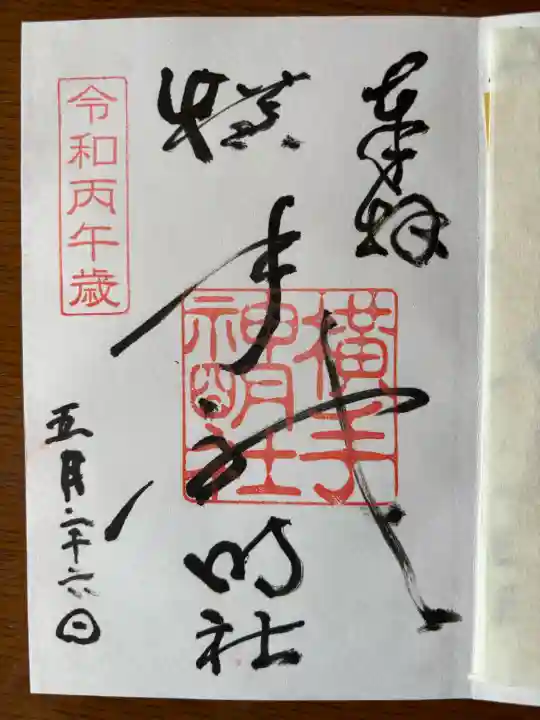 奉拝
横手神明社
横手神明社
令和丙午歳
五月二十六日